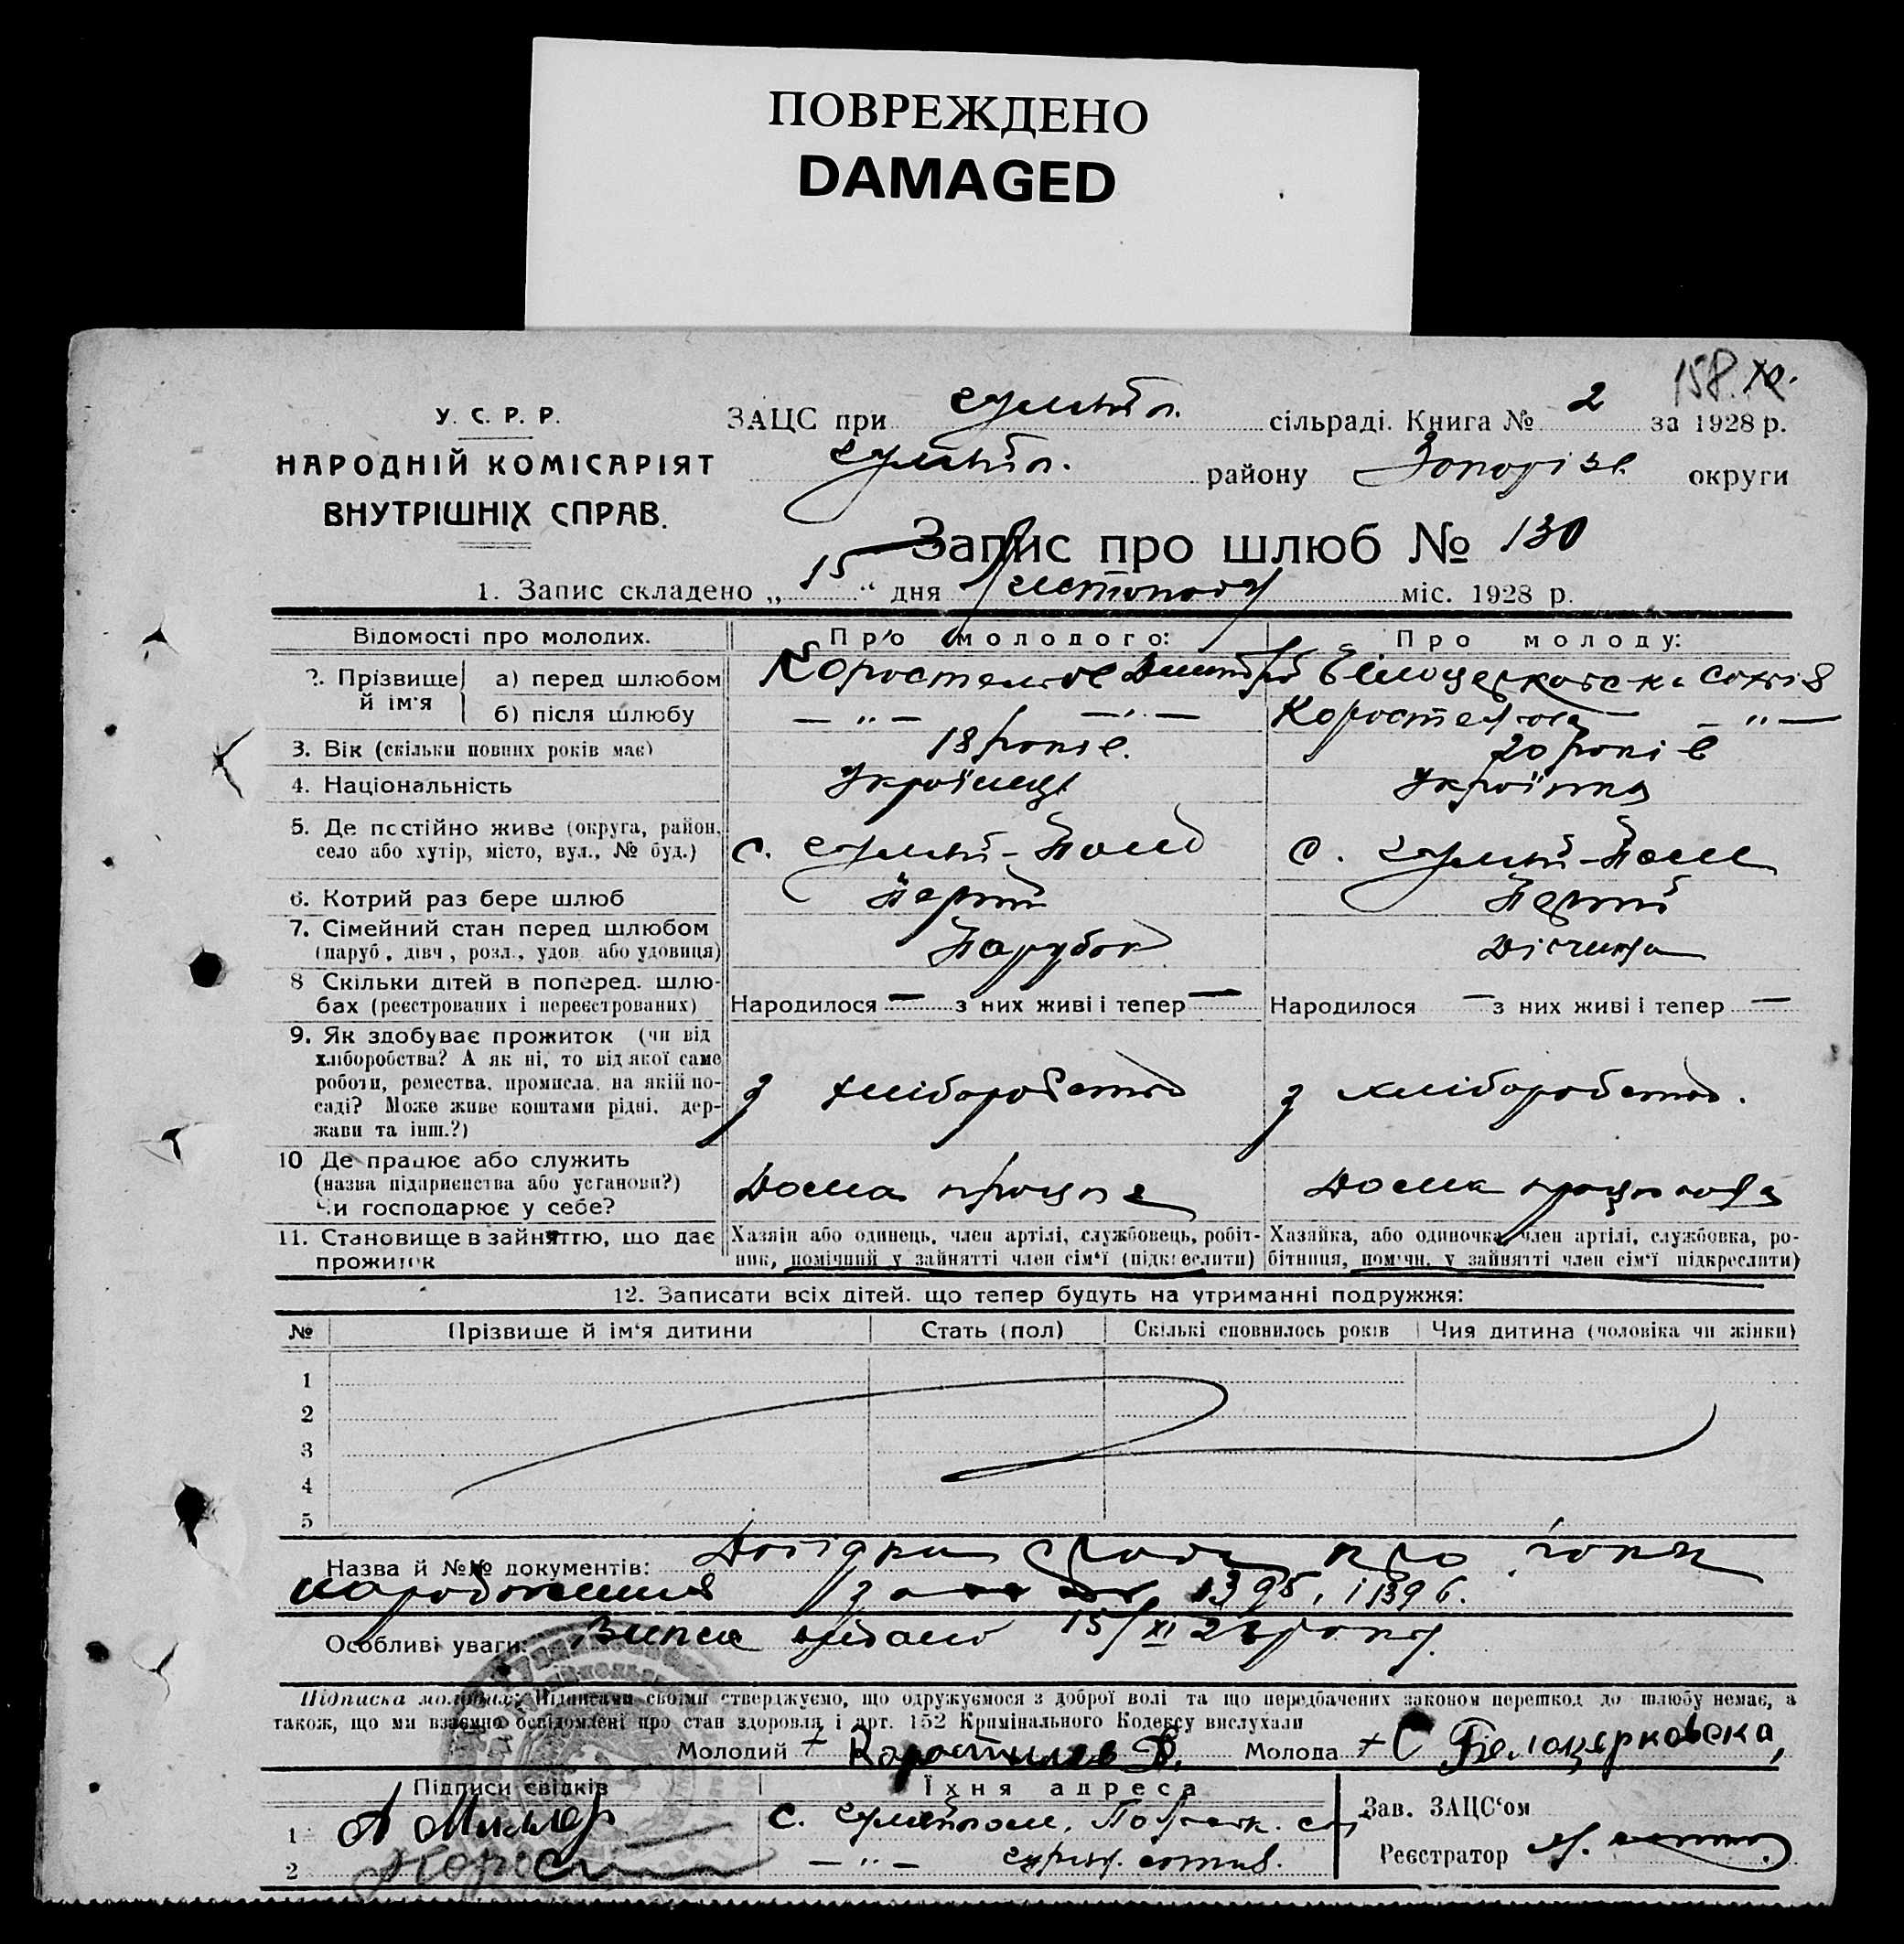 ПОВРЕЖДЕНО
DAMAGED
158.
У. С. Р. Р.
НАРОДНІЙ КОМІСАРІЯТ
ВНУТРІШНІХ СПРАВ.
ЗАЦС при Гуляйп. сільраді. Книга № 2 за 1928 р.
Гуляйп. району Запоріз. округи
Запис про шлюб № 130
1. Запис складено „15“ дня листопада міс. 1928 р.
Відомості про молодих. Про молодого: Про молоду:
2. Прізвище й ім'я а) перед шлюбом Коростельов Дмитрій Білоцерковська Софія
б) після шлюбу — „ — — „ — Коростельова — „ —
3. Вік (скільки повних років має) 18 років. 20 років
4. Національність Українець Українка
5. Де постійно живе (округа, район, село або хутір, місто, вул., № буд.) с. Гуляй-Поле с. Гуляй-Поле
6. Котрий раз бере шлюб Перший Перший
7. Сімейний стан перед шлюбом (паруб., дівч., розл., удов. або удовиця) Парубок Дівчина
8 Скільки дітей в поперед. шлюбах (реєстрованих і нереєстрованих) Народилося — з них живі і тепер — Народилося — з них живі і тепер —
9. Як здобуває прожиток (чи від хліборобства? А як ні, то від якої саме роботи, ремества, промисла, на якій посаді? Може живе коштами рідні, держави та інш.?) з хліборобства з хліборобства.
10 Де працює або служить (назва підприємства або установи?) Чи господарює у себе? Дома працює Дома працювала
11. Становище в зайняттю, що дає прожиток Хазяїн або одинець, член артілі, службовець, робітник, помічний у зайнятті член сім'ї (підкреслити) Хазяйка, або одиночка, член артілі, службовка, робітниця, помічн. у зайнятті член сім'ї підкреслити)
12. Записати всіх дітей, що тепер будуть на утриманні подружжя:
№ Прізвище й ім'я дитини Стать (пол) Скількі сповнилось років Чия дитина (чоловіка чи жінки)
1
2
3
4
5
Назва й №№ документів: Довідки про роки
народження за 1395, і 1396.
Особливі уваги: Випис видано 15/XI 28 року.
Підписка молодих: Підписами своїми стверджуємо, що одружуємося з доброї волі та що передбачених законом перешкод до шлюбу немає, а
також, що ми взаємно освідомлені про стан здоровля і арт. 152 Кримінального Кодексу вислухали
Молодий + Коростилев Д. Молода + С Белоцерковска,
Підписи свідків Їхня адреса
Зав. ЗАЦС'ом
1 А Миллер с. Гуляйполе,
2 — „ —
Реєстратор